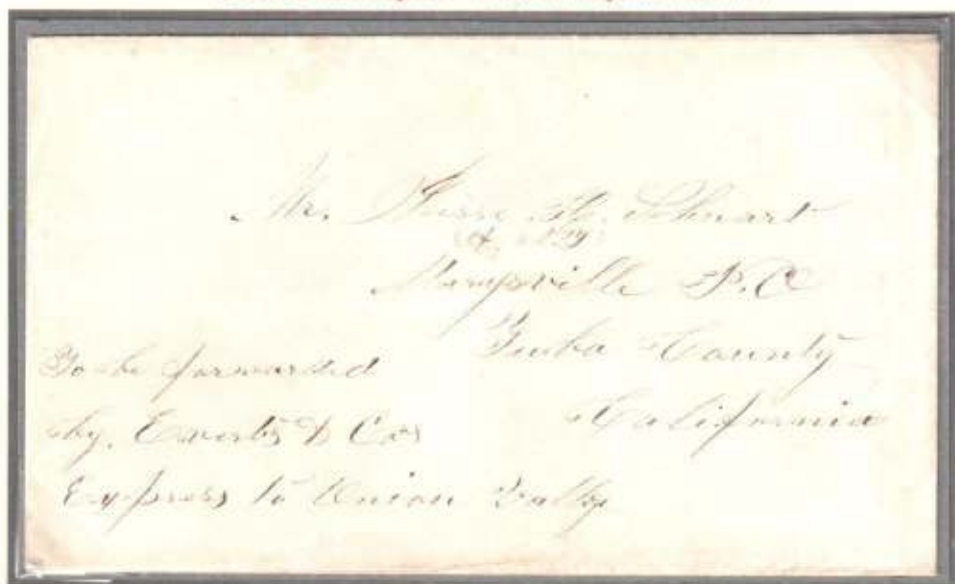 Mr. Schuart
Marysville P.O
Yuba County
California
To be forwarded
by Everts & Cos
Express to Union Vally